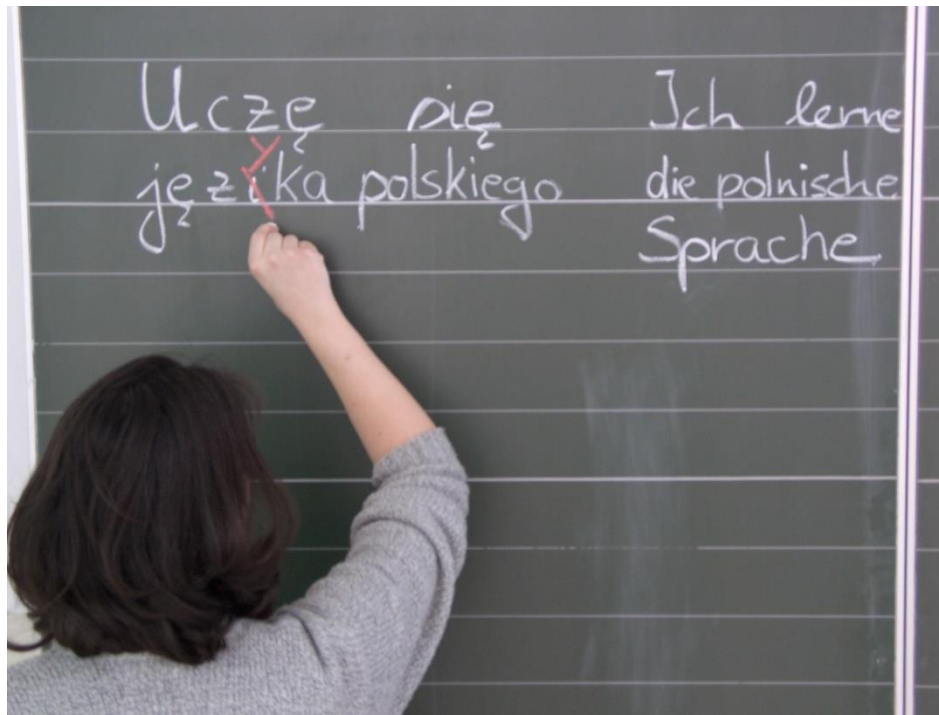 Uczę się
języka polskiego
Ich lerne
die polnische
Sprache